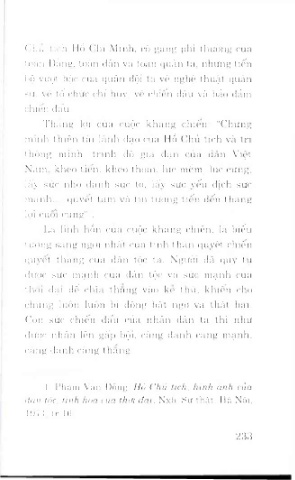 Chủ tịch Hồ Chí Minh, cố gắng phi thường của
toàn Đảng, toàn dân và toàn quân ta, những tiến
bộ vượt bậc của quân đội ta về nghệ thuật quân
sự, về tổ chức chỉ huy, về chiến đấu và bảo đảm
chiến đấu.
Thắng lợi của cuộc kháng chiến "Chứng
minh thiên tài lãnh đạo của Hồ Chủ tịch và trí
thông minh, trình độ già dặn của dân Việt
Nam, khéo tiến, khéo thoái, lúc mềm, lúc cứng,
lấy sức nhỏ đánh sức to, lấy sức yếu địch sức
mạnh... quyết tâm và tin tưởng tiến đến thắng
lợi cuối cùng".
Là linh hồn của cuộc kháng chiến, là biểu
tượng sáng ngời nhất của tinh thần quyết chiến
quyết thắng của dân tộc ta, Người đã quy tụ
được sức mạnh của dân tộc và sức mạnh của
thời đại để chĩa thẳng vào kẻ thù, khiến cho
chúng luôn luôn bị động bất ngờ và thất bại.
Còn sức chiến đấu của nhân dân ta thì như
được nhân lên gấp bội, càng đánh càng mạnh,
càng đánh càng thắng.
1. Phạm Văn Đồng: Hồ Chủ tịch, hình ảnh của
dân tộc, tinh hoa của thời đại, Nxb. Sự thật, Hà Nội,
tr.16.
233